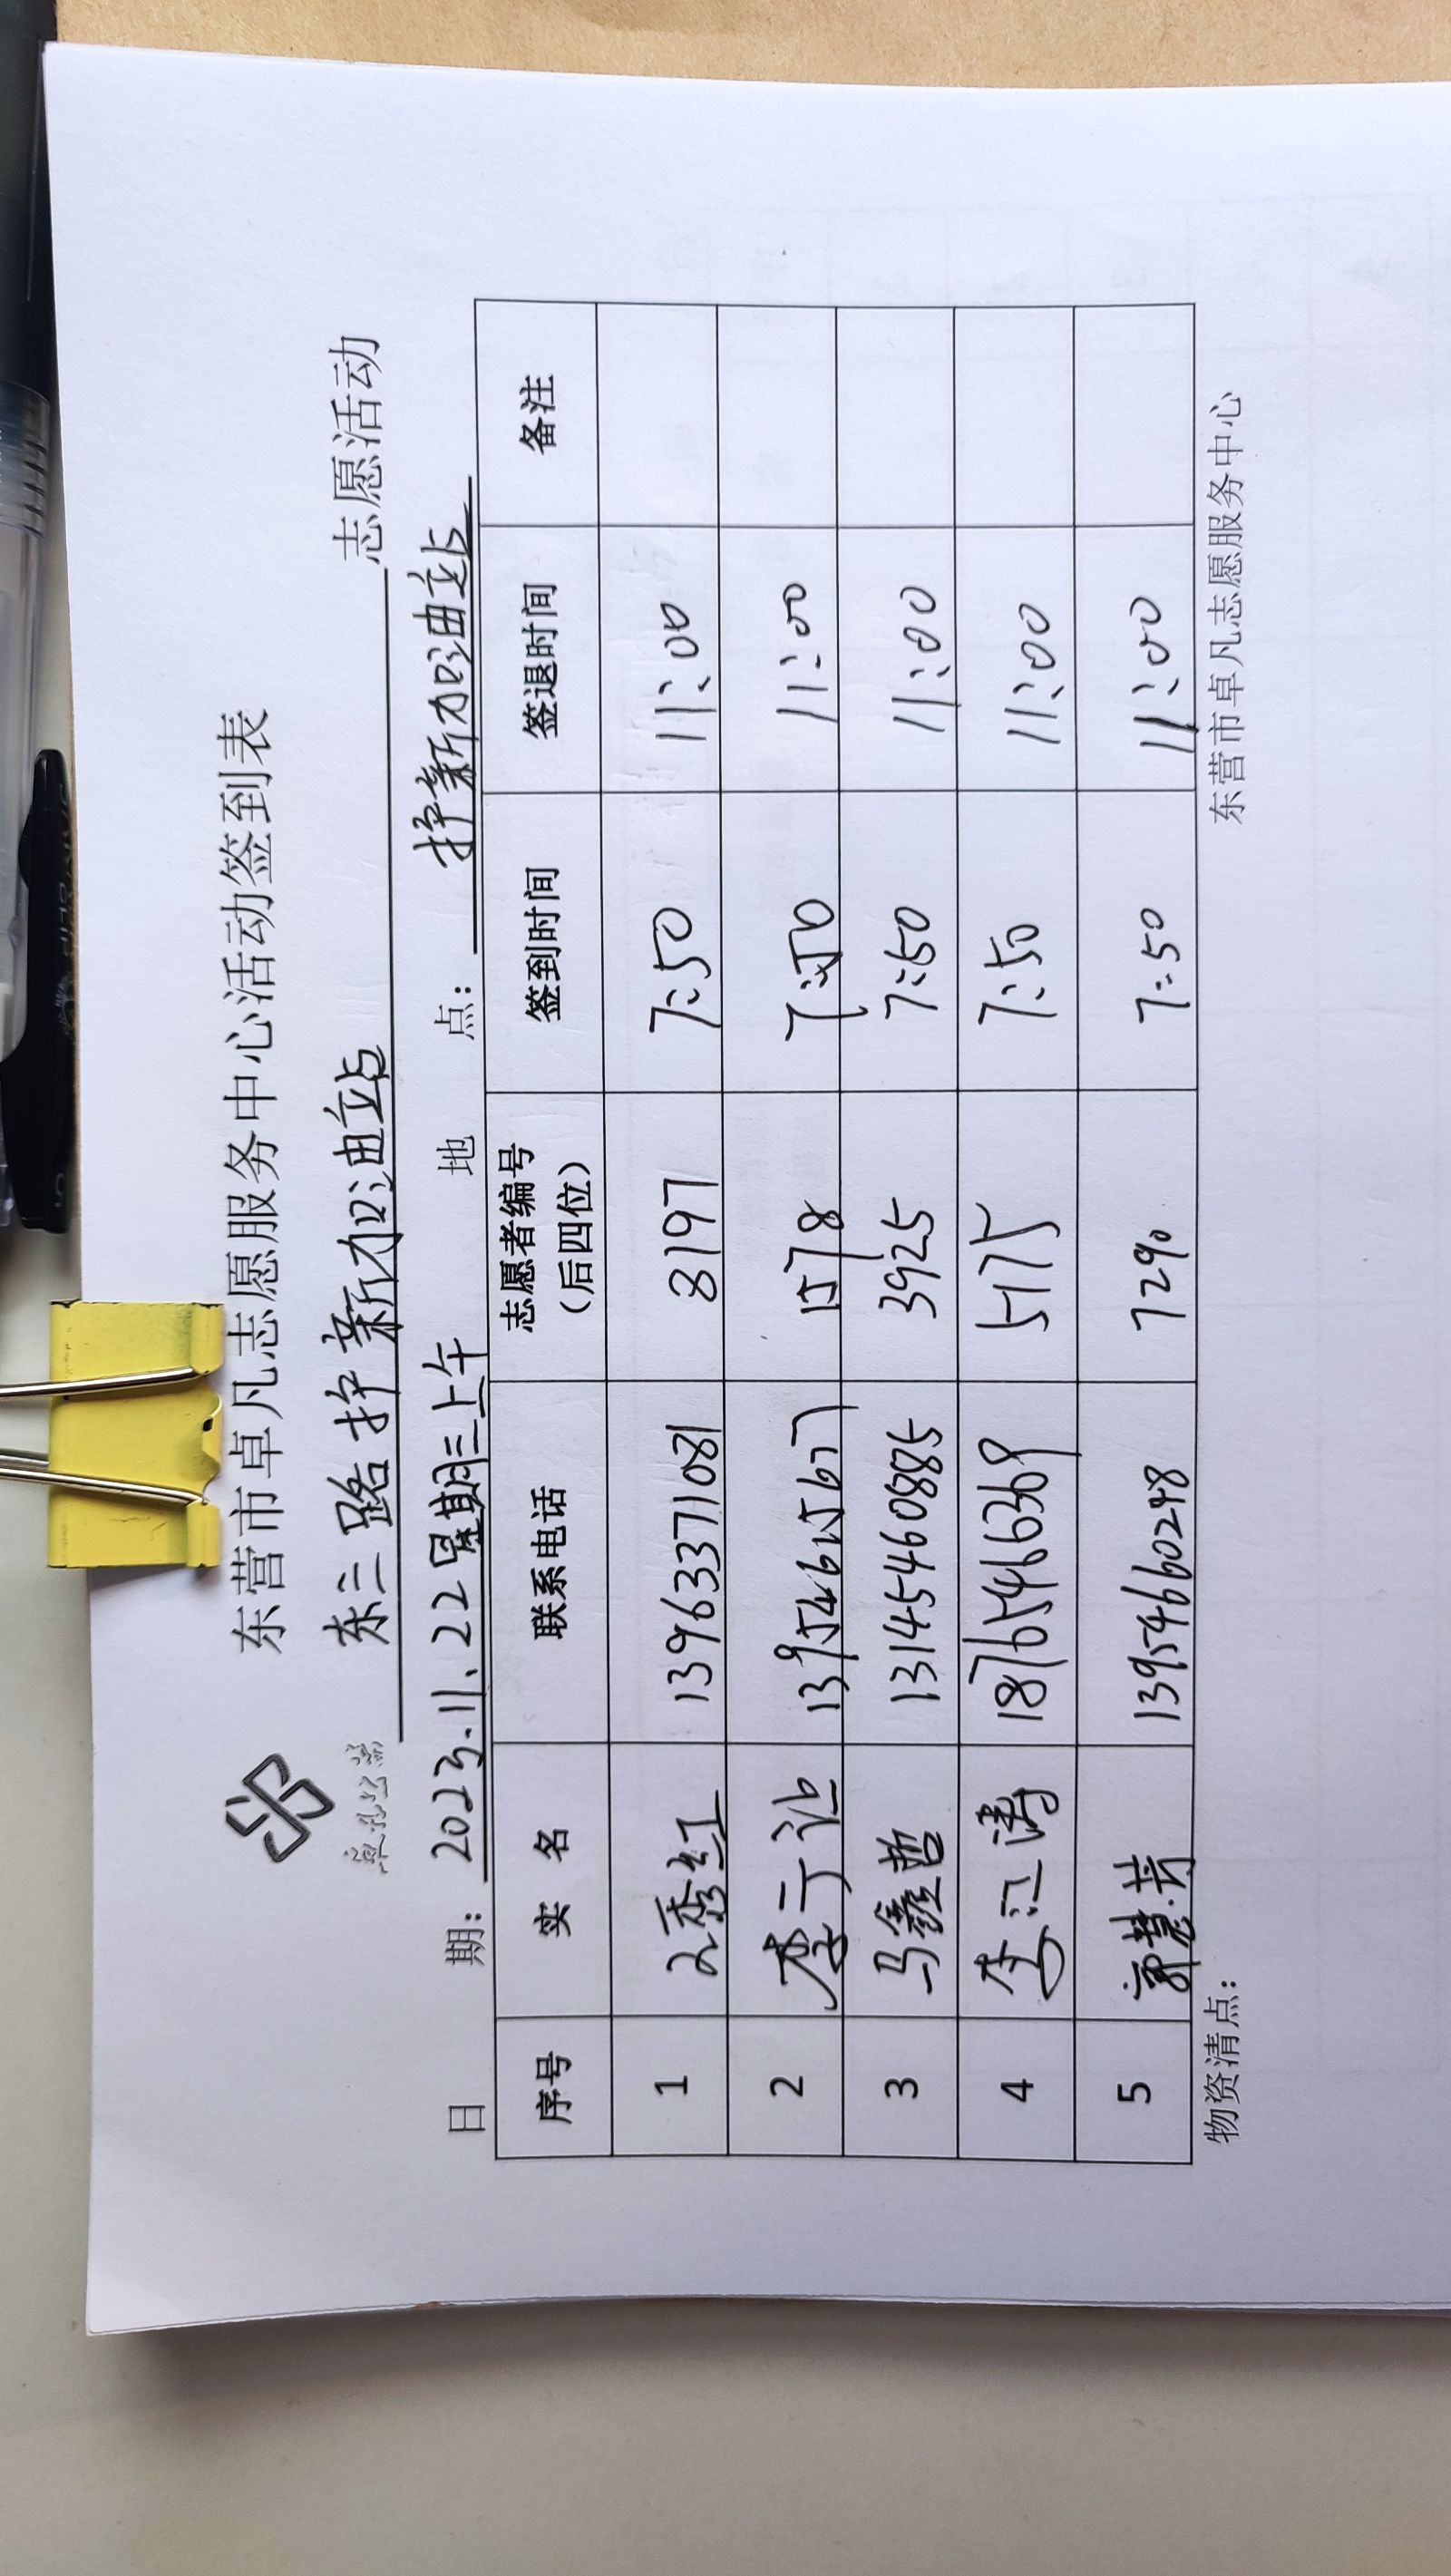 东营市卓凡志愿服务中心活动签到表
东三路护新加油站 志愿活动
日 期: 2023.11.22星期三上午 地 点: 护新加油站
序号 实 名 联系电话 志愿者编号(后四位) 签到时间 签退时间 备注
1 秀红 13963371081 8197 7:50 11:00
2 李 1578 7:50 11:00
3 马鑫哲 13145460885 3925 7:50 11:00
4 李江涛 18765466369 5175 7:50 11:00
5 郭慧芳 13954660248 7290 7:50 11:00
物资清点: 东营市卓凡志愿服务中心